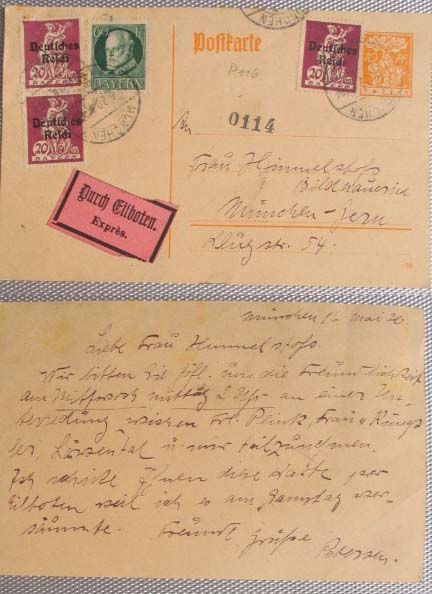 Deutsches
Reich
20 20
BAYERN
60
BAYERN
Deutsches
Reich
20 20
BAYERN
MÜNCHEN
Postkarte
P 116
0114
MÜNCHEN
Deutsches
Reich
20 20
BAYERN
MÜNCHEN
BAYERN
An
Frau Himmelstoss
Bildhauerin
München-Jern
Klugstr. 54.
Durch Eilboten.
Exprès.
München 16 Mai 20.
Liebe Frau Himmelstoss.
Wir bitten Sie höfl. uns die Freundlichkeit
am Mittwoch mittag 2 Uhr an einer Un-
terredung zwischen Frl. Plink, Frau
u mir teilzunehmen.
Ich schicke Ihnen diese Karte per
Eilboten weil ich es am Samstag ver-
säumte. Freundl. Grüße
Petersen.